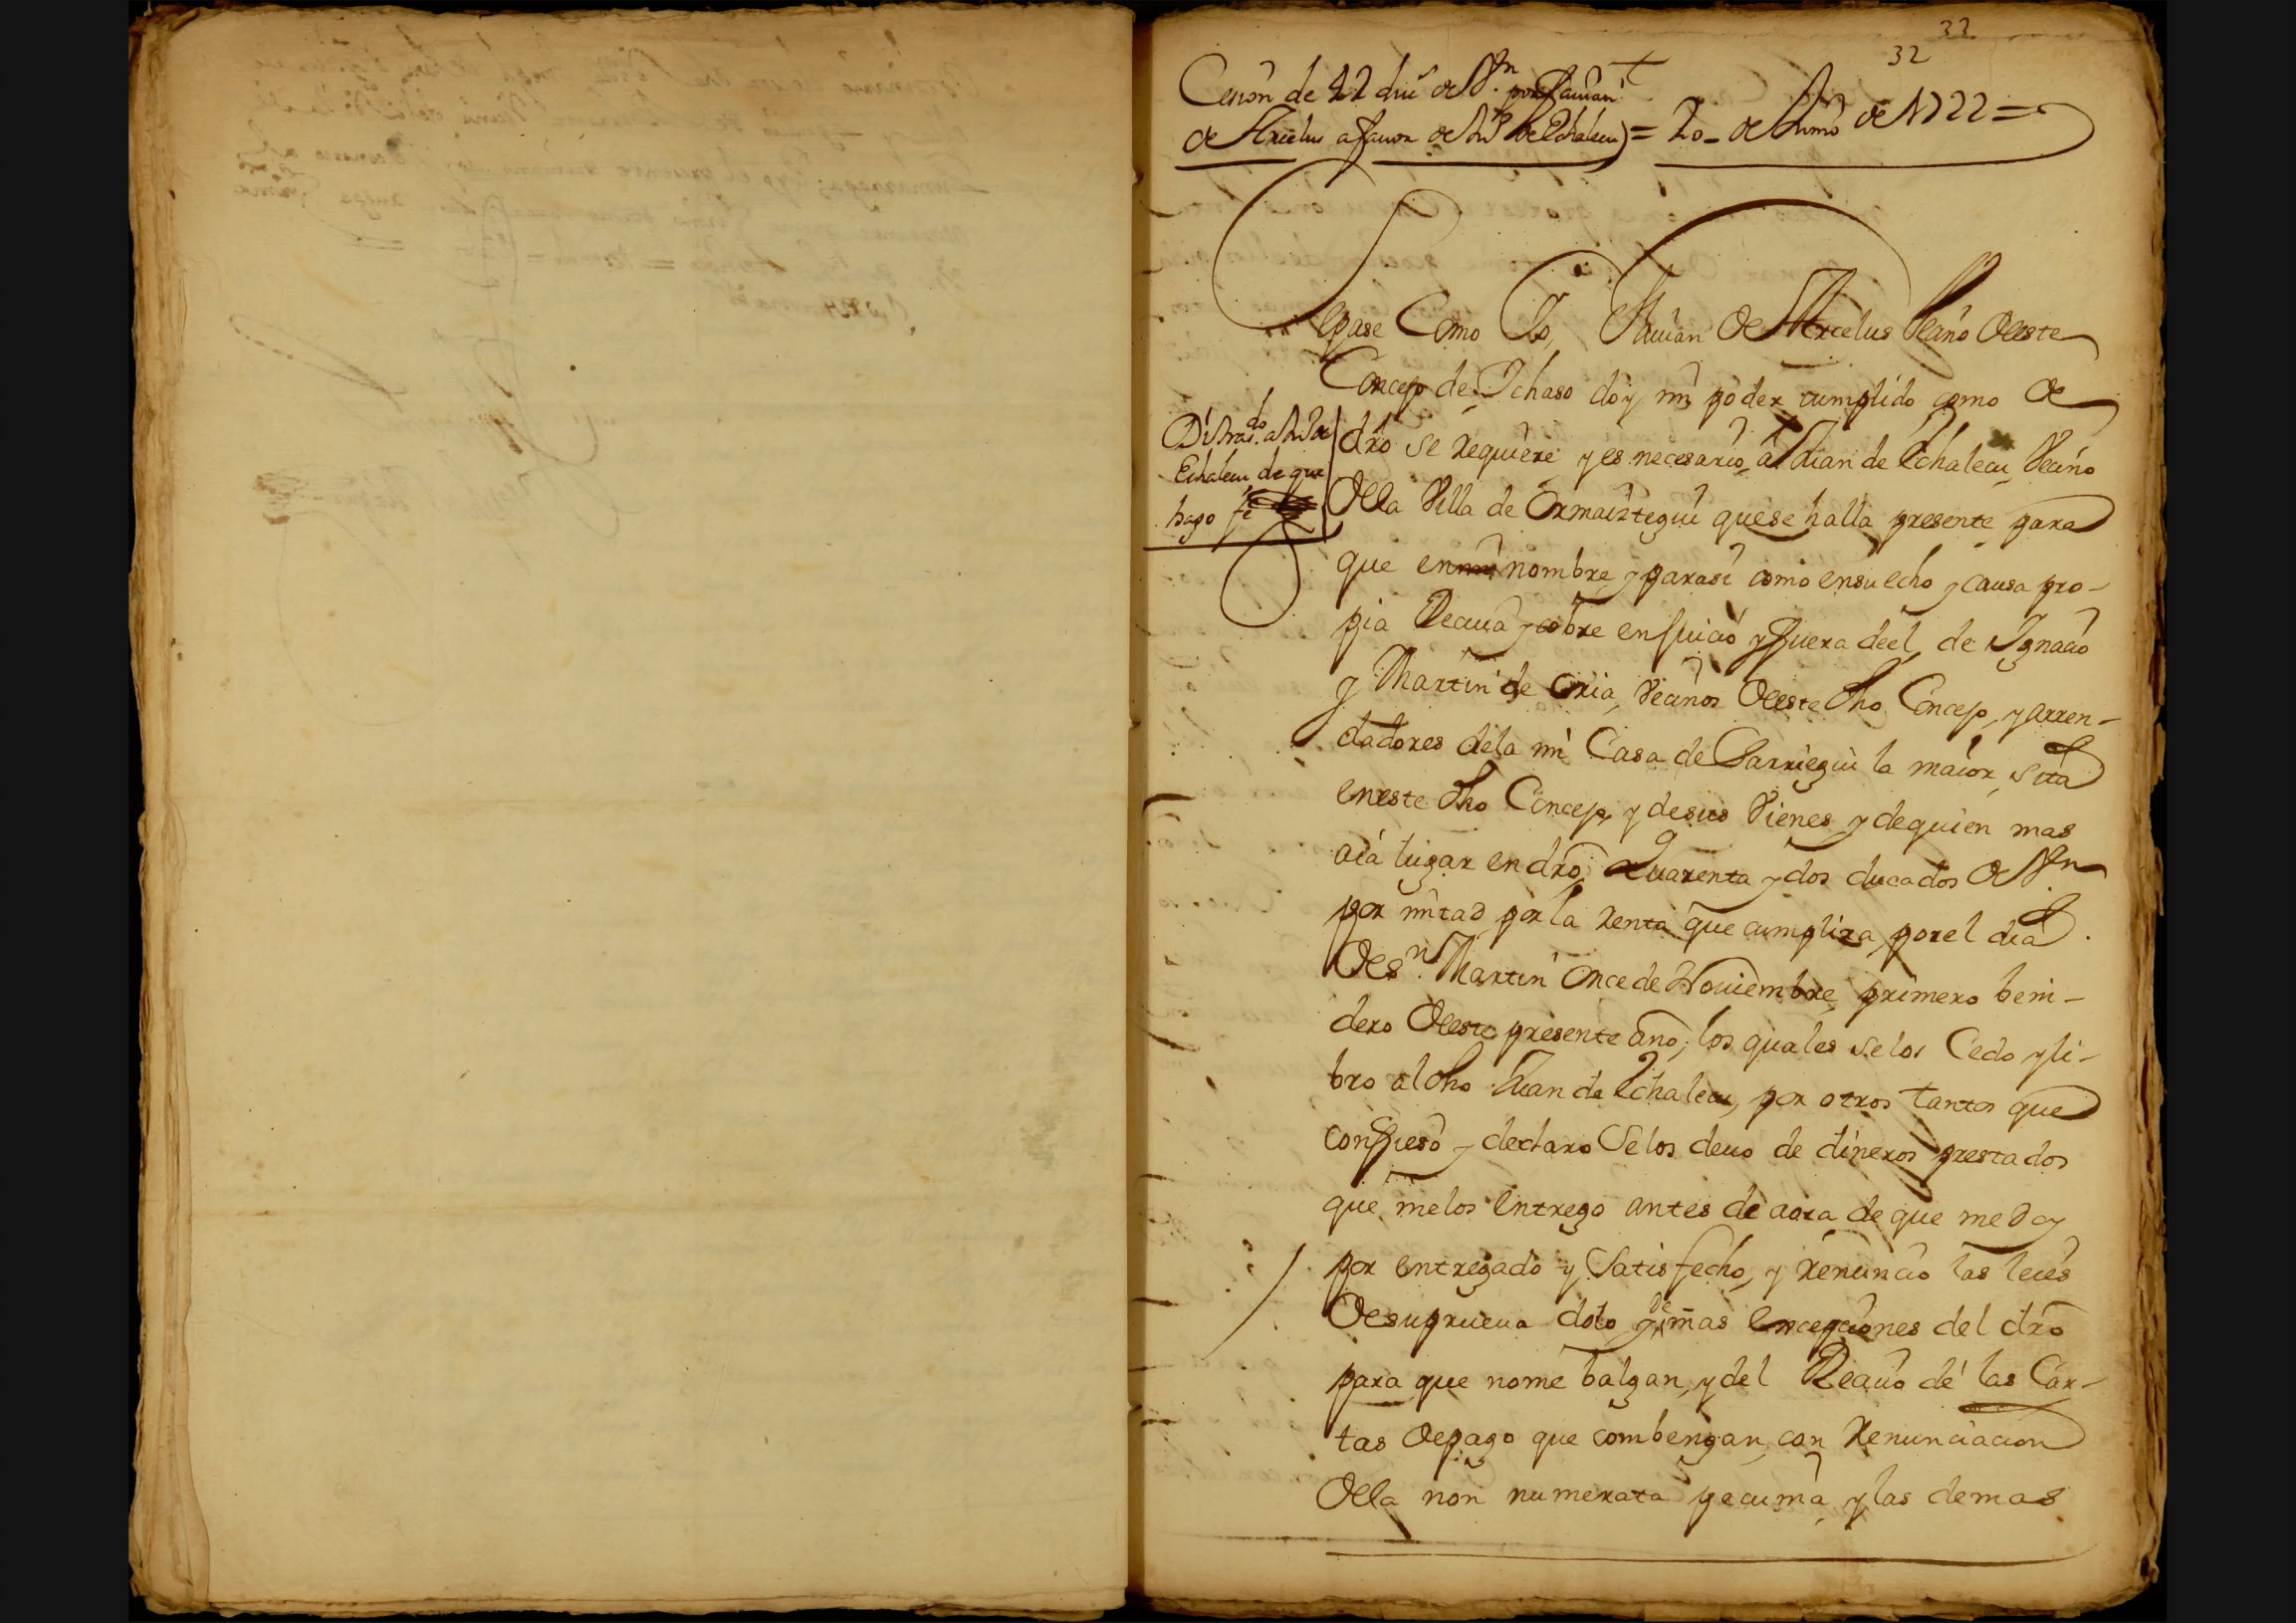 33
32
Cesion de 42 du^s de V^n. por Fauian
de Arcelus a fauor de Ju^o de Echalecu) = 20 - de Junio de 1722 =
Sepase Como Yo, Fauian de Arcelus Vecino deeste
Concejo de Ychaso doy mi poder cumplido como de
dro se requiere y es necesario, a Juan de Echalecu, Vecino
de la Villa de Ormaiztegui que se halla presente, para
que en nombre, y parasi como ensu echo y causa pro-
pia Reciua y cobre en juicio y fuera deel, de Ygnacio
y Martin de Oria, Vecinos deeste dho Concejo, y arren-
dadores dela mi Casa de Garriegui la maior, sita
eneste dho Concejo, y desus Vienes y dequien mas
aia lugar en dro, Quarenta y dos ducados de V^n.
por mitad por la renta que cumplira, porel dia
de S^n. Martin once de Nouiembre, primero beni-
dero deeste presente año; los quales selos Cedo y li-
bro al dho Juan de Echalecu, por otros tantos que
confieso y declaro Selos deuo de dineros prestados
que melos entrego antes de aora de que me doy
por entregado y Satisfecho, y renuncio las leies
de su prueua dolo y de mas excepciones del dro
para que nome balgan, y del Reciuo de las Car-
tas de pago que combengan, con renunciacion
de la non numerata pecunia, y las demas
Di tras^do. a Ju^o de
Echalecu de que
hago fe